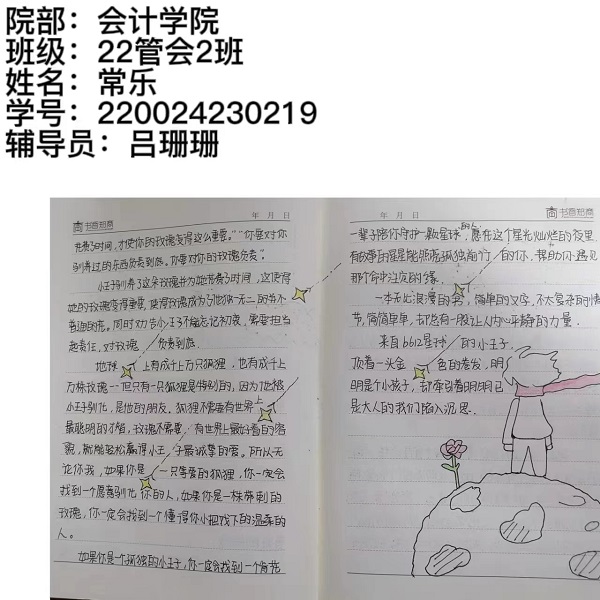 院部：会计学院
班级：22管会2班
姓名：常乐
学号：220024230219
辅导员：吕珊珊
书香知意
年 月 日
花费了时间，才使你的玫瑰变得这么重要。”“你要对你
驯养过的东西负责到底。你要对你的玫瑰负责。”
小王子驯养了这朵玫瑰并为她花费了时间，这使得
她的玫瑰变得重要，使得玫瑰成为了他独一无二的
的花。同时对告小王子不能忘记初衷，需要担当
起责任，对玫瑰 负责到底。
地球 上有成千上万只狐狸，也有成千上
万株玫瑰一但只有一只狐狸是特别的，因为他被
小王子驯化，是他的朋友，狐狸不需要有世界上
最聪明的才能，玫瑰不需要 有世界上最好看的容
貌，就能轻松赢得小王 子最诚挚的爱，所以无
论你我，如果你是 一只普普的狐狸，你一定会
找到一个愿意驯化 你的人，如果你是一株带刺的
玫瑰，你一定会找到一个懂得你小把戏下的温柔的
人。
如果你是一个孤独的小王子，你一定会找到一个肯花
年 月 日
书香知意
一辈子陪你守护一颗星球的人，愿在这个星光灿烂的夜里
有故事的星星能照亮孤独前行 的你，帮助你遇见
那个命中注定的缘。
一本无比浪漫的书，简单的文字，不太复杂的情
节，简简单单，却总有一股让人内心平静的力量。
来自b612星球 的小王子，
顶着一头金 色的卷发，明
明是个小孩子，却牵引着明明已
是大人的我们陷入沉思。